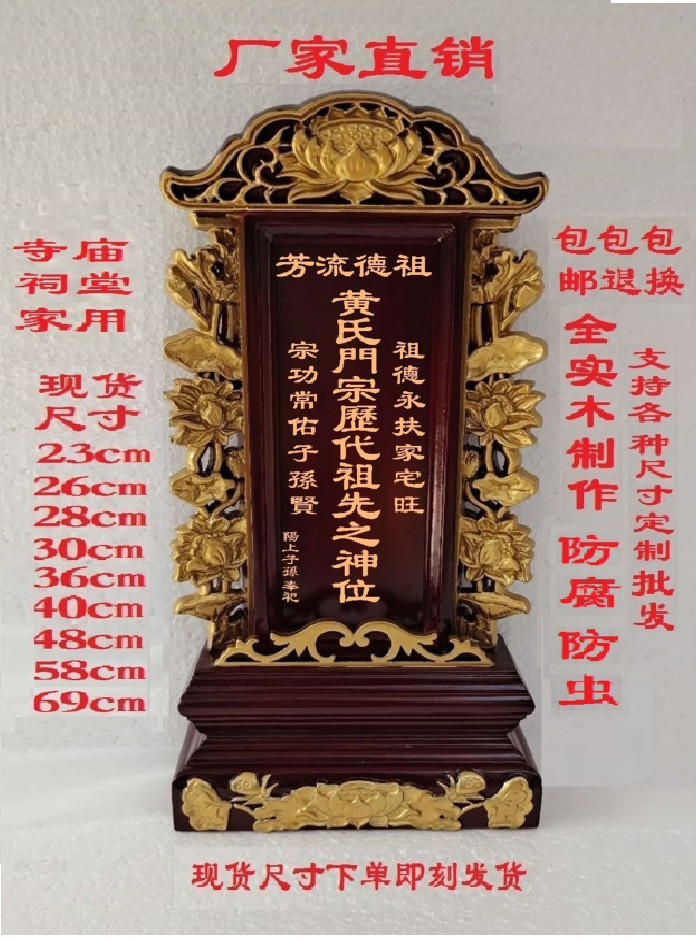 厂家直销
寺庙
祠堂
家用
现货
尺寸
23cm
26cm
28cm
30cm
36cm
40cm
48cm
58cm
69cm
芳流德祖
祖德永扶家宅旺
黄氏門宗歷代祖先之神位
宗功常佑子孫賢
陽上子孫奉祀
包包包
邮退换
全实木制作 防腐防虫
支持各种尺寸定制批发
现货尺寸下单即刻发货